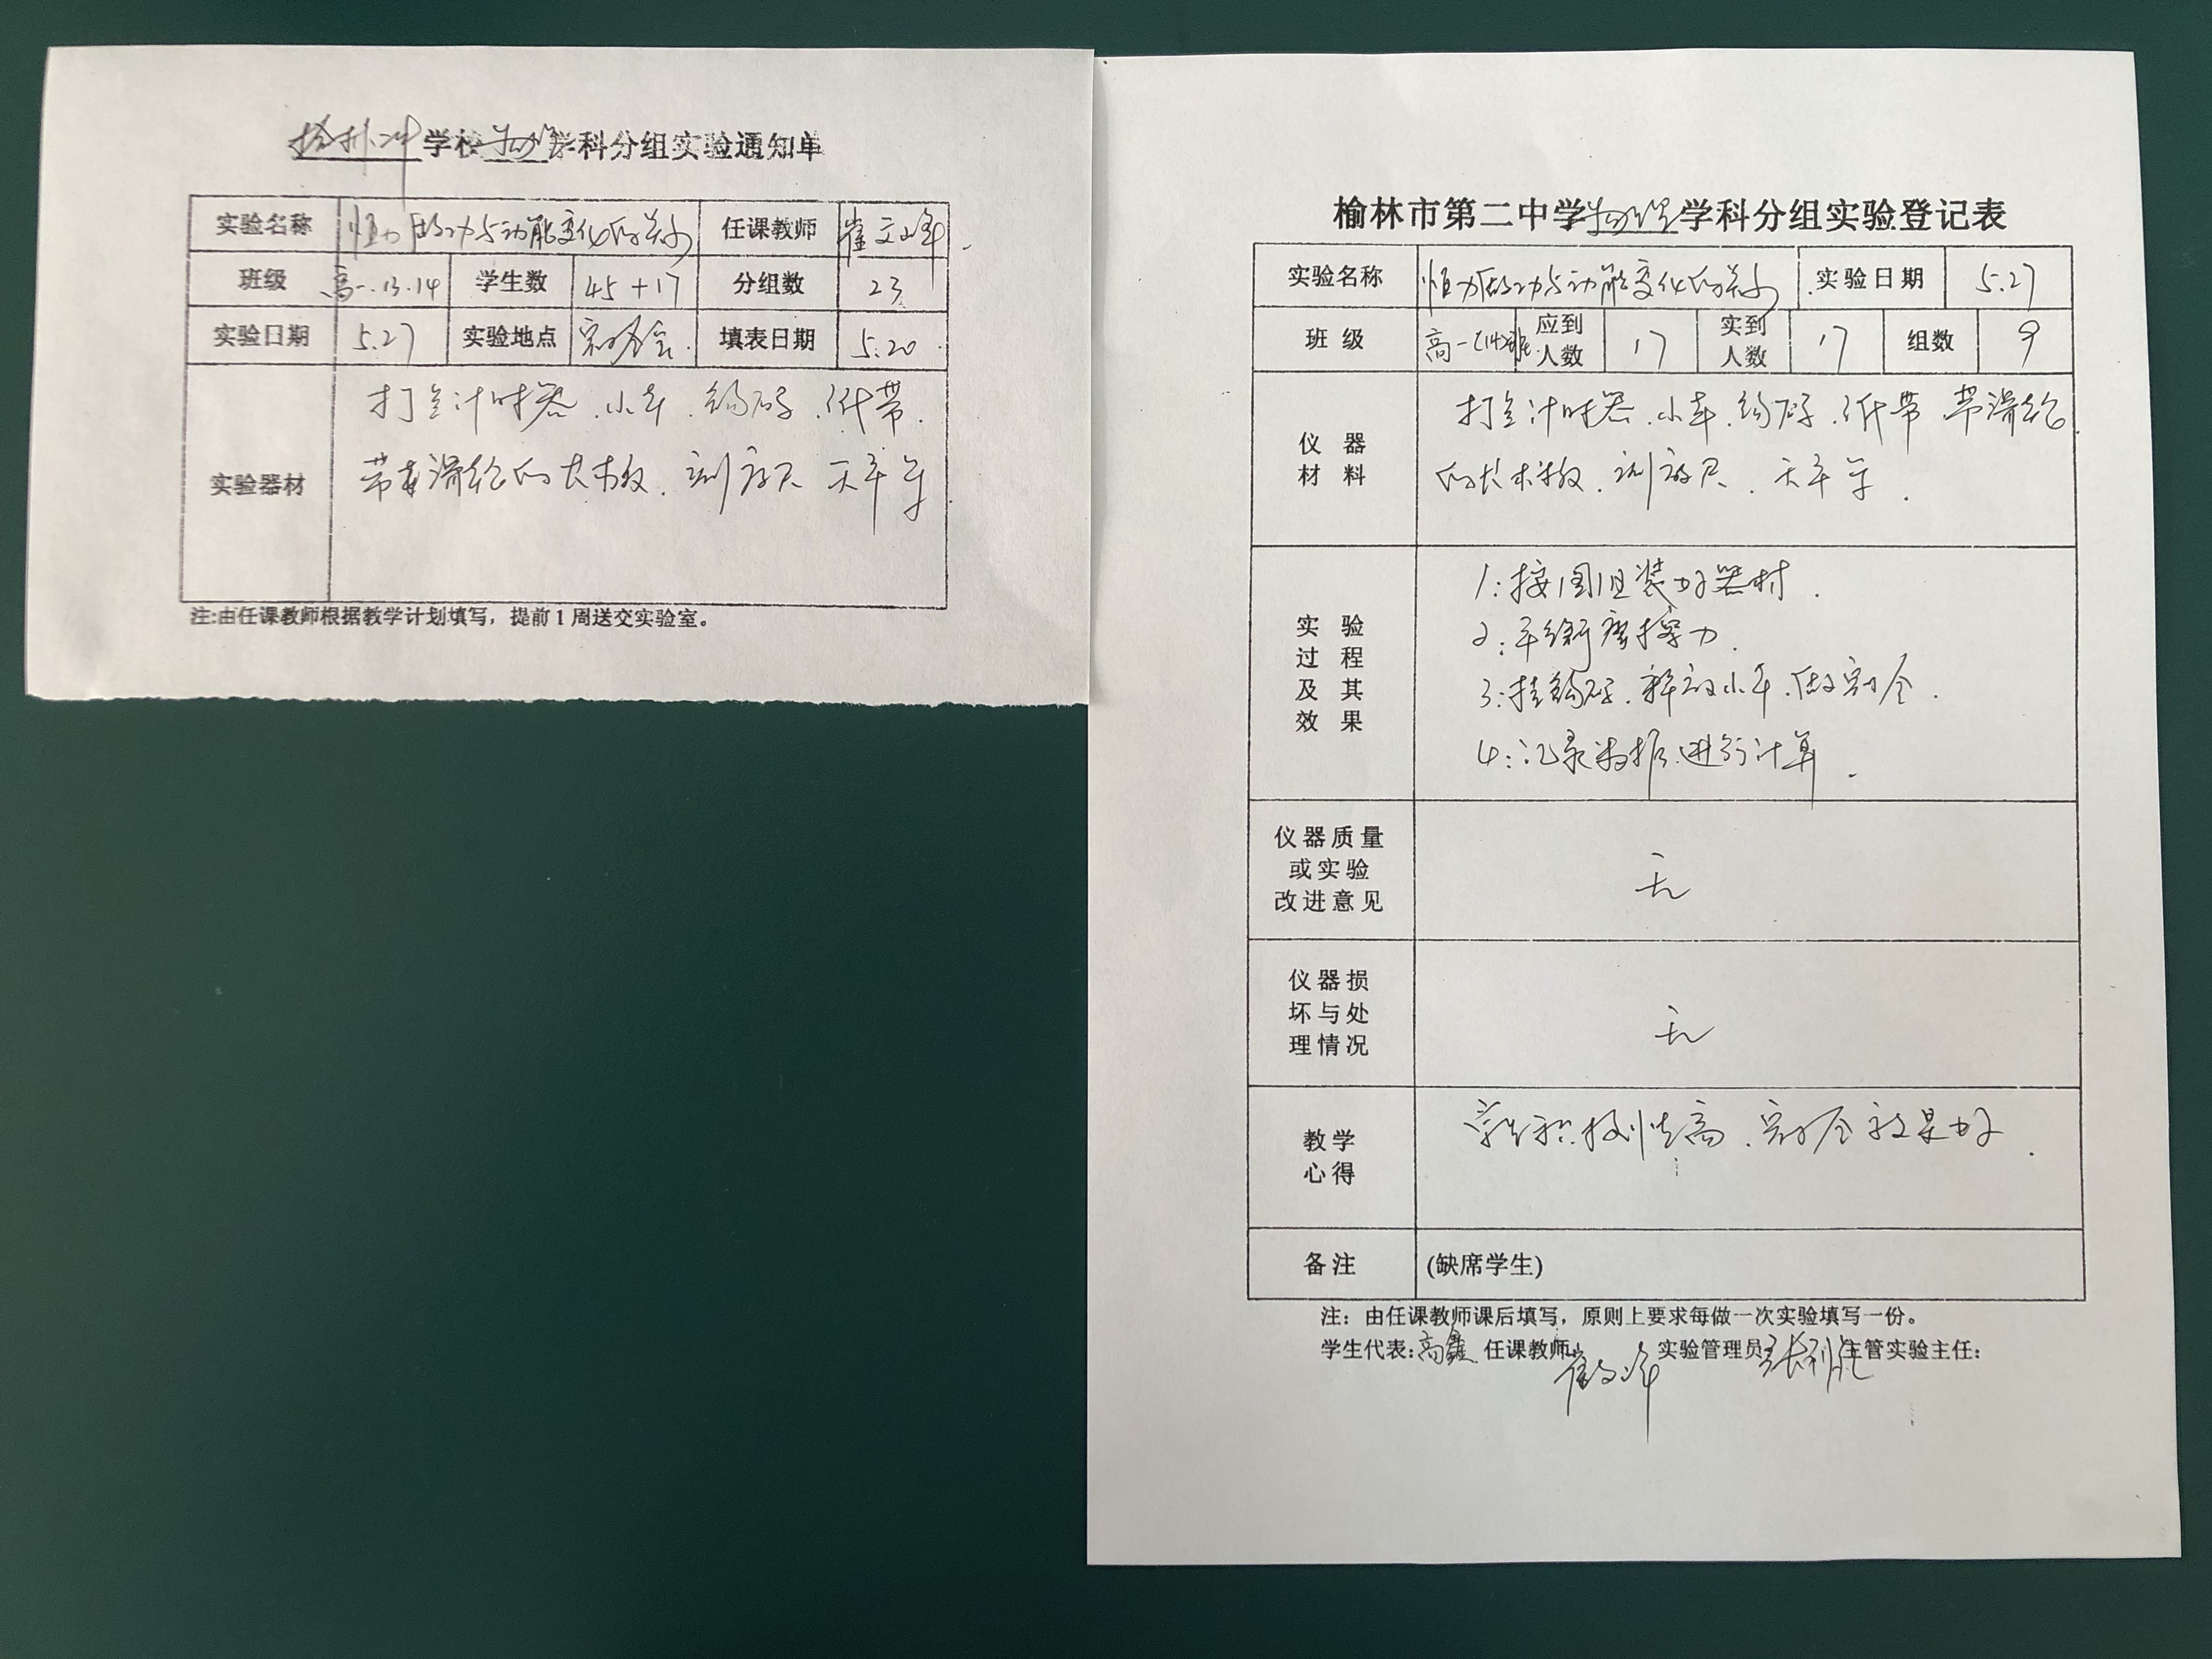 榆林二中学校物理学科分组实验通知单
实验名称 恒力做功与动能变化的关系 任课教师 崔文峰
班级 高一.13.14 学生数 45+17 分组数 23
实验日期 5.27 实验地点 实验室. 填表日期 5.20
实验器材 打点计时器.小车.钩码.纸带.
带有滑轮的长木板.刻度尺 天平等
注:由任课教师根据教学计划填写，提前1周送交实验室。
榆林市第二中学物理学科分组实验登记表
实验名称 恒力做功与动能变化的关系 实验日期 5.27
班级 高一(14)班 应到人数 17 实到人数 17 组数 9
仪器材料 打点计时器.小车.钩码.纸带 带滑轮
的长木板.刻度尺.天平等.
实验过程及其效果 1:按图组装好器材.
2:平衡摩擦力.
3:挂钩码.释放小车.做实验.
4:记录数据.进行计算.
仪器质量
或实验
改进意见
无
仪器损
坏与处
理情况
无
教学心得 学生积极性高.实验效果好.
备注 (缺席学生)
注：由任课教师课后填写，原则上要求每做一次实验填写一份。
学生代表:高鑫 任课教师:崔文峰 实验管理员 主管实验主任: